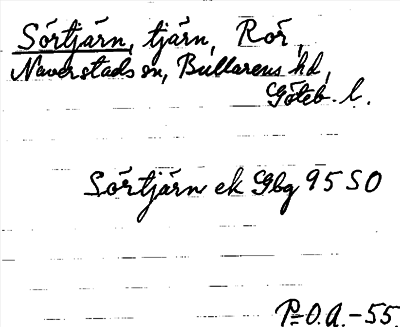 Sörtjärn, tjärn, Rör,
Naverstads sn, Bullarens hd,
Göteb. l.
Sörtjärn ek Gbg 95 SO
P-O.A. -55.